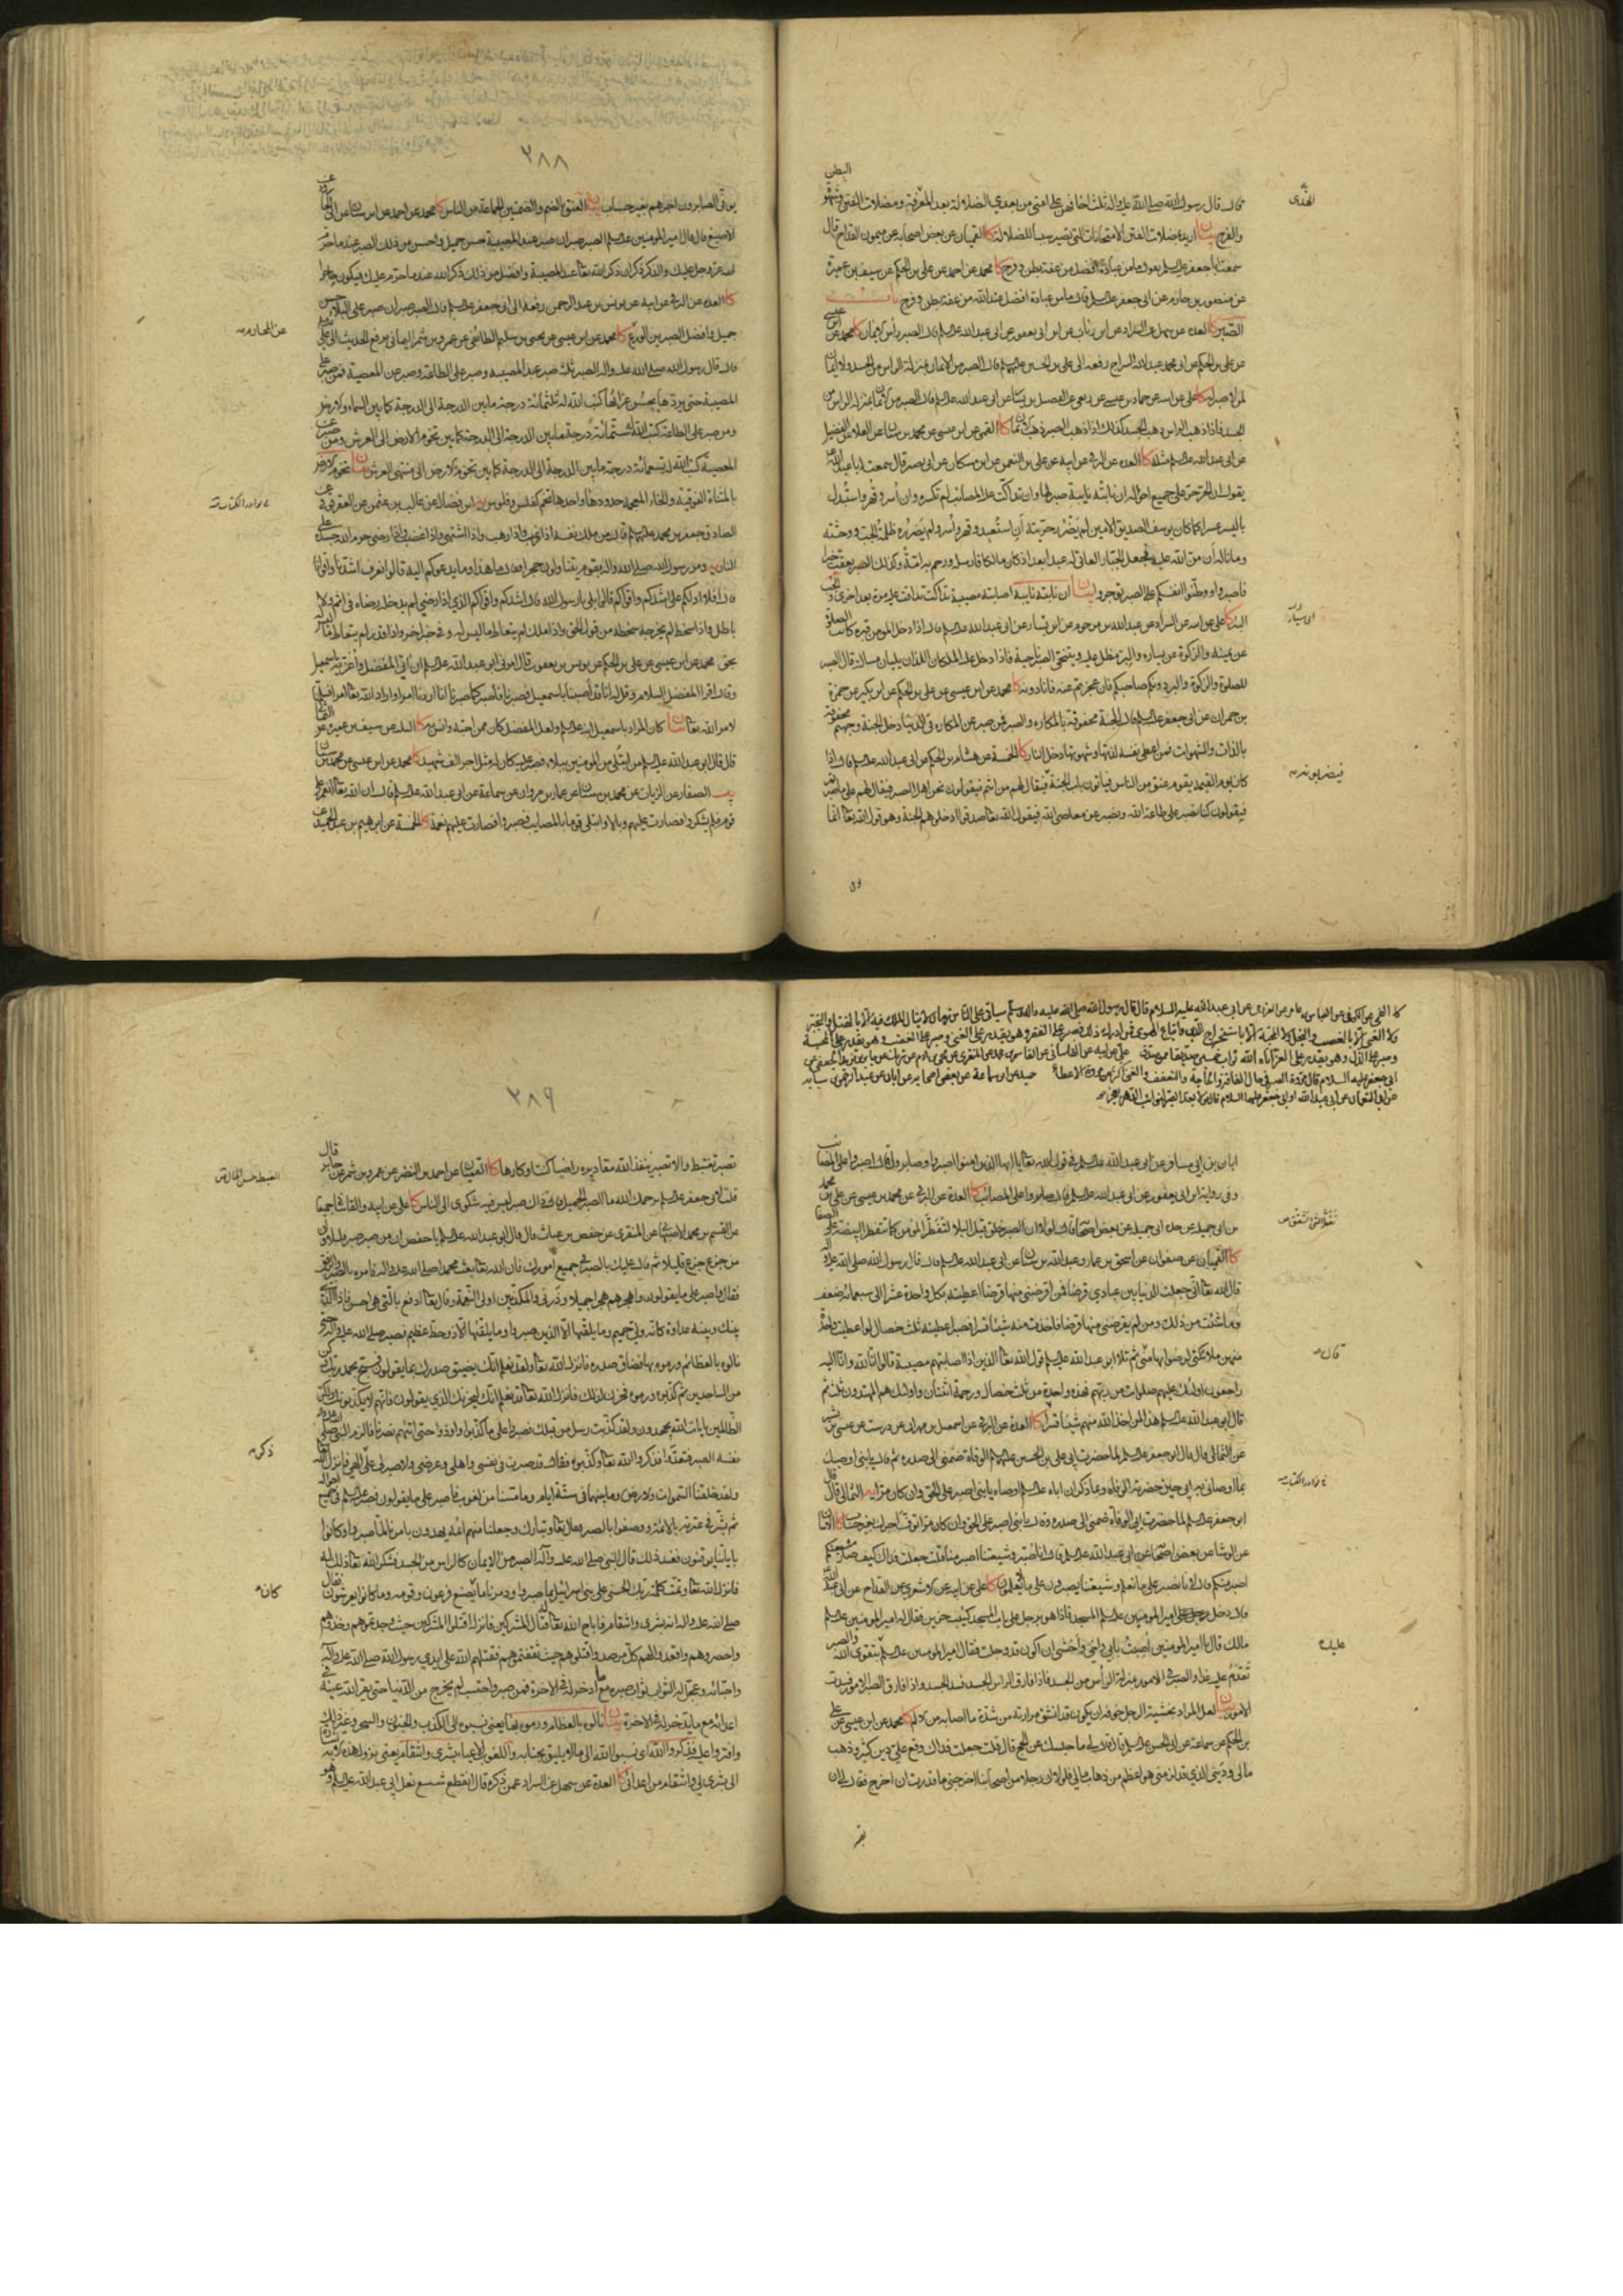 البطن
قال قال رسول الله صلى الله عليه واله ثلث اخافهن على امتي من بعدي الضلالة بعد المعرفة ومضلات الفتن وشهوة
والفرج بيان اريد بمضلات الفتن الامتحانات التي تصير سببا للضلالة كا القميان عن بعض اصحابه عن ميمون القداح قال
سمعت ابا جعفر عليه السلم يقول ما من عبادة افضل من عفة بطن وفرج كا محمد عن احمد عن علي بن الحكم عن سيف بن عميرة
عن منصور بن حازم عن ابي جعفر عليه السلم قال ما من عبادة افضل عند الله من عفة بطن وفرج باب
الصبر كا العدة عن سهل عن السراد عن ابن رئاب عن ابن ابي يعفور عن ابي عبد الله عليه السلم قال الصبر رأس الايمان كا محمد عن ابن عيسى
عن علي بن الحكم عن ابي محمد عبد الله السراج رفعه الى علي بن الحسين عليهما السلم قال الصبر من الايمان بمنزلة الراس من الجسد ولا ايمان
لمن لا صبر له كا علي عن ابيه عن حماد بن عيسى عن ربعي عن الفضيل بن يسار عن ابي عبد الله عليه السلم قال الصبر من الايمان بمنزلة الراس من
الجسد فاذا ذهب الراس ذهب الجسد كذلك اذا ذهب الصبر ذهب الايمان كا القمي عن ابن عيسى عن محمد بن سنان عن العلا بن الفضيل
عن ابي عبد الله عليه السلم مثله كا العدة عن البرقي عن ابيه عن علي بن النعمن عن ابن مسكان عن ابي بصير قال سمعت ابا عبد الله
يقول ان الحر حر على جميع احواله ان نابته نايبة صبر لها وان تداكت عليه المصائب لم تكسره وان أسر وقهر واستبدل
باليسر عسرا كما كان يوسف الصديق الامين لم يضرر حريته أن استعبد وقهر وأسر ولم يضرره ظلمة الجب ووحشته
وما ناله أن من الله عليه فجعل الجبار العاتي له عبدا بعد اذ كان مالكا فارسله ورحم به امة وكذلك الصبر يعقب خيرا
فاصبروا ووطنوا انفسكم على الصبر توجروا بيان ان نابته نايبة اصابته مصيبة تداكت تدافعت عليه مرة بعد اخرى
كا علي عن ابيه عن السراد عن عبد الله بن مرحوم عن ابي سيار عن ابي عبد الله عليه السلم قال اذا دخل المومن قبره كانت الصلوة
عن يمينه والزكوة عن يساره والبر مظل عليه ويتنحى الصبر ناحية فاذا دخل عليه الملكان اللذان يليان مسائلته قال الصبر
للصلوة والزكوة والبر دونكم صاحبكم فان عجزتم عنه فانا دونه كا محمد عن ابن عيسى عن علي بن الحكم عن ابن بكير عن حمزة
بن حمران عن ابي جعفر عليه السلم قال الجنة محفوفة بالمكاره والصبر فمن صبر على المكاره في الدنيا دخل الجنة وجهنم محفوفة
باللذات والشهوات فمن اعطى نفسه لذتها وشهوتها دخل النار كا الخمسة عن هشام بن الحكم عن ابي عبد الله عليه السلم قال اذا
كان يوم القيمة يقوم عنق من الناس فياتون باب الجنة فيقال لهم من انتم فيقولون نحن اهل الصبر فيقال لهم على ما صبرتم
فيقولون كنا نصبر على طاعة الله ونصبر عن معاصي الله فيقول الله تعالى صدقوا ادخلوهم الجنة وهو قول الله تعالى انما
٢٨٨
يوفى الصابرون اجرهم بغير حساب بيان العنق بالضم والضمتين الجماعة من الناس كا محمد عن احمد عن ابن سنان عن ابي الجارود عن
الاصبغ قال قال امير المومنين عليه السلم الصبر صبران صبر عند المصيبة حسن جميل واحسن من ذلك الصبر عند ما حرم
الله عز وجل عليك والذكر ذكران ذكر الله تعالى عند المصيبة وافضل من ذلك ذكر الله عند ما حرم عليك فيكون حاجزا
كا العدة عن البرقي عن ابيه عن يونس بن عبد الرحمن رفعه الى ابي جعفر عليه السلم قال الصبر صبران صبر على البلاء حسن
جميل وافضل الصبرين الورع كا محمد عن ابن عيسى عن يحيى بن سليم الطائفي عن عمرو بن شمر اليماني يرفع الحديث الى علي
قال قال رسول الله صلى الله عليه واله الصبر ثلثة صبر عند المصيبة وصبر على الطاعة وصبر عن المعصية فمن صبر على
المصيبة حتى يردها بحسن عزائها كتب الله له ثلثمائة درجة ما بين الدرجة الى الدرجة كما بين السماء والارض
ومن صبر على الطاعة كتب الله له ستمائة درجة ما بين الدرجة الى الدرجة كما بين تخوم الارض الى العرش ومن صبر عن
المعصية كتب الله له تسعمائة درجة ما بين الدرجة الى الدرجة كما بين تخوم الارض الى منتهى العرش بيان تخوم الارض
بالمثناة الفوقية والخاء المعجمة حدودها واحدها تخم كفلس وفلوس يه ابن فضال عن غالب بن عثمن عن العقرقوفي عن
الصادق جعفر بن محمد عليهما السلم قال من ملك نفسه اذا رغب واذا رهب واذا اشتهى واذا غضب واذا رضي حرم الله جسده على
النار يه ومر رسول الله صلى الله عليه واله بقوم يرفعون حجرا فقال ما هذا وما يدعوكم اليه قالوا نعرف اشدنا واقوانا
قال افلا ادلكم على اشدكم واقواكم قالوا بلى يا رسول الله قال اشدكم واقواكم الذي اذا رضي لم يدخله رضاه في اثم ولا
باطل واذا سخط لم يخرجه سخطه من قول الحق واذا ملك لم يتعاط ما ليس له وفي خبر اخر واذا قدر لم يتعاط ما ليس له
بحق محمد عن ابن عيسى عن علي بن الحكم عن يونس بن يعقوب قال امرني ابو عبد الله عليه السلم ان اتي المفضل واعزيه باسمعيل
وقال اقرأ المفضل السلام وقل له انا قد أصبنا باسمعيل فصبرنا فاصبر كما صبرنا انا اردنا امرا واراد الله تعالى امرا فسلمنا
لامر الله تعالى بيان كان المراد باسمعيل ابنه عليه السلم ولعل المفضل كان ممن احبه وانس به كا الثلثة عن سيف بن عميرة عن الثمالي
قال قال ابو عبد الله عليه السلم من ابتلي من المومنين ببلاء فصبر عليه كان له مثل اجر الف شهيد كا محمد عن ابن عيسى عن محمد بن سنان
يب الصفار عن الزيات عن محمد بن سنان عن عمار بن مروان عن سماعة عن ابي عبد الله عليه السلم قال ان الله تعالى انعم على
قوم فلم يشكروا فصارت عليهم وبالا وابتلى قوما بالمصايب فصبروا فصارت عليهم نعمة كا الخمسة عن ابرهيم بن عبد الحميد عن
كا القمي عن الكوفي عن العباس بن عامر عن العرزمي عن ابي عبد الله عليه السلام قال قال رسول الله صلى الله عليه واله وسلم سياتي على الناس زمان لا ينال الملك فيه الا بالقتل والتجبر
ولا الغنى الا بالغصب والبخل ولا المحبة الا باستخراج الدين واتباع الهوى فمن ادرك ذلك فصبر على الفقر وهو يقدر على الغنى وصبر على البغضة وهو يقدر على المحبة
وصبر على الذل وهو يقدر على العز اتاه الله ثواب خمسين صديقا ممن صدق
ابي جعفر عليه السلام قال مروة الصبر في حال الفاقة والحاجة والتعفف والغنى اكثر من مروة الاعطاء حميد عن ابن سماعة عن بعض اصحابه عن ابان عن عبد الرحمن بن سيابة
عن ابي النعمان عن ابي عبد الله او ابي جعفر عليهما السلام قال من لا يعد الصبر لنوائب الدهر يعجز
ابان بن ابي مسافر عن ابي عبد الله عليه السلم في قول الله تعالى يا ايها الذين امنوا اصبروا وصابروا قال اصبروا على المصائب
وفي رواية ابن ابي يعفور عن ابي عبد الله عليه السلم قال صابروا على المصائب كا العدة عن البرقي عن محمد بن عيسى عن علي بن محمد
بن ابي جميلة عن جده ابي جميلة عن بعض اصحابه قال لولا ان الصبر خلق قبل البلاء لتفطر المومن كما تتفطر البيضة على الصفا
كا القميان عن صفوان عن اسحق بن عمار وعبد الله بن سنان عن ابي عبد الله عليه السلم قال قال رسول الله صلى الله عليه واله
قال الله تعالى اني جعلت الدنيا بين عبادي قرضا فمن اقرضني منها قرضا اعطيته بكل واحدة عشرا الى سبعمائة ضعف
وما شئت من ذلك ومن لم يقرضني منها قرضا فاخذت منه شيئا قسرا فصبر اعطيته ثلث خصال لو اعطيت واحدة
منهن ملائكتي لرضوا بها مني ثم تلا ابو عبد الله عليه السلم قول الله تعالى الذين اذا اصابتهم مصيبة قالوا انا لله وانا اليه
راجعون اولئك عليهم صلوات من ربهم فهذه واحدة من ثلث خصال ورحمة اثنتان واولئك هم المهتدون ثلث ثم
قال ابو عبد الله عليه السلم هذا لمن اخذ الله منهم شيئا قسرا كا العدة عن البرقي عن اسمعيل بن مهران عن درست عن عيسى بن بشير
عن الثمالي قال قال ابو جعفر عليه السلم لما حضرت ابي علي بن الحسين عليهما السلم الوفاة ضمني الى صدره ثم قال يا بني اوصيك
بما اوصاني به ابي حين حضرته الوفاة وبما ذكر ان اباه عليه السلم اوصاه يا بني اصبر على الحق وان كان مرا يه الثمالي قال قال
ابو جعفر عليه السلم لما حضرت ابي الوفاة ضمني الى صدره وقال يا بني اصبر على الحق وان كان مرا توف اجرك بغير حساب كا
عن الوشا عن بعض اصحابنا عن ابي عبد الله عليه السلم قال انا صبر وشيعتنا اصبر منا قلت جعلت فداك كيف صار شيعتكم
اصبر منكم قال لانا نصبر على ما نعلم وشيعتنا يصبرون على ما لا يعلمون كا علي عن ابيه عن الاشعري عن القداح عن ابي عبد الله
قال دخل امير المومنين عليه السلم المسجد فاذا هو برجل على باب المسجد كئيب حزين فقال له امير المومنين عليه السلم
مالك قال يا امير المومنين أصبت بابي وامي واخي واخشى ان اكون قد وجلت فقال امير المومنين عليه السلم بتقوى الله والصبر
تقدم عليه غدا والصبر في الامور بمنزلة الرأس من الجسد فاذا فارق الراس الجسد فسد الجسد واذا فارق الصبر الامور فسدت
الامور بيان لعل المراد بخشية الرجل خوفه ان يكون قد انشق مرارته من شدة ما اصابه من الالم كا محمد عن ابن عيسى عن علي
بن الحكم عن سماعة عن ابي الحسن عليه السلم قال قال لي ما حبسك عن الحج قال قلت جعلت فداك وقع علي دين كثير وذهب
مالي وديني الذي قد لزمني هو اعظم من ذهاب مالي فلولا ان رجلا من اصحابنا اخرجني ما قدرت ان اخرج فقال لي ان
٢٨٩
تصبر تغتبط والا تصبر ينفذ الله مقاديره راضيا كنت او كارها كا القميان عن احمد بن النضر عن عمرو بن شمر عن جابر قال
قلت لابي جعفر عليه السلم يرحمك الله ما الصبر الجميل قال ذاك صبر ليس فيه شكوى الى الناس كا علي عن ابيه والقاساني جميعا
عن القسم بن محمد الاصبهاني عن المنقري عن حفص بن غياث قال قال ابو عبد الله عليه السلم يا حفص ان من صبر صبر قليلا وان
من جزع جزع قليلا ثم قال عليك بالصبر في جميع امورك فان الله تعالى بعث محمدا صلى الله عليه واله فامره بالصبر والرفق
فقال واصبر على ما يقولون واهجرهم هجرا جميلا وذرني والمكذبين اولي النعمة وقال تعالى ادفع بالتي هي احسن فاذا الذي
بينك وبينه عداوة كانه ولي حميم وما يلقيها الا الذين صبروا وما يلقيها الا ذو حظ عظيم فصبر صلى الله عليه واله حتى
نالوه بالعظائم ورموه بها فضاق صدره فانزل الله تعالى ولقد نعلم انك يضيق صدرك بما يقولون فسبح بحمد ربك وكن
من الساجدين ثم كذبوه ورموه فحزن لذلك فانزل الله تعالى قد نعلم انه ليحزنك الذي يقولون فانهم لا يكذبونك ولكن
الظالمين بايات الله يجحدون ولقد كذبت رسل من قبلك فصبروا على ما كذبوا واوذوا حتى اتيهم نصرنا فالزم النبي صلى الله عليه واله
نفسه الصبر فتعدوا فذكروا الله تعالى وكذبوه فقال قد صبرت في نفسي واهلي وعرضي ولا صبر لي على الهي فانزل الله
ولقد خلقنا السموات والارض وما بينهما في ستة ايام وما مسنا من لغوب فاصبر على ما يقولون فصبر عليه السلم في جميع احواله
ثم بشر في عترته بالائمة ووصفوا بالصبر فقال تعالى وتبارك وجعلنا منهم ائمة يهدون بامرنا لما صبروا وكانوا
باياتنا يوقنون فعند ذلك قال النبي صلى الله عليه واله الصبر من الايمان كالراس من الجسد فشكر الله تعالى ذلك له
فانزل الله تعالى وتمت كلمة ربك الحسنى على بني اسرائيل بما صبروا ودمرنا ما يصنع فرعون وقومه وما كانوا يعرشون فقال
صلى الله عليه واله انه بشرى وانتقام فاباح الله تعالى قتال المشركين فانزل اقتلوا المشركين حيث وجدتموهم وخذوهم
واحصروهم واقعدوا لهم كل مرصد واقتلوهم حيث ثقفتموهم فقتلهم الله على ايدي رسول الله صلى الله عليه واله
واحبائه وعجل له الثواب ثواب صبره مع ما ادخر له في الاخرة فمن صبر واحتسب لم يخرج من الدنيا حتى يقر الله عينه في
اعدائه مع ما يدخر له في الاخرة بيان نالوه بالعظائم ورموه بها يعني نسبوه الى الكذب والجنون والسحر وغير ذلك
وافتروا عليه فذكروا الله اي نسبوا الله الى ما لا يليق بجنابه واللغوب الاعياء بشرى وانتقام يعني نزول هذه الاية
الى بشرى لي وانتقام من اعدائي كا العدة عن سهل عن السراد عمن ذكره قال انقطع شسع نعل ابي عبد الله عليه السلم وهو